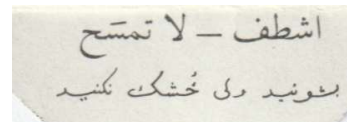 اشطف – لا تمسَح
بشوئید ولی خُشک نکنید